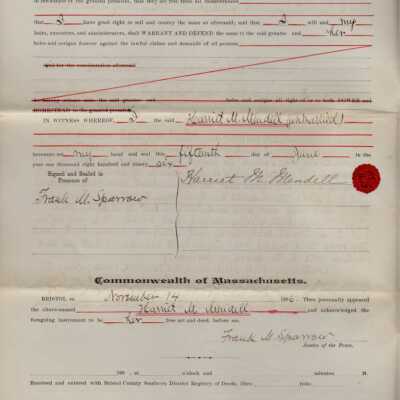 that I have good right to sell and convey the same as aforesaid; and that I will and my
heirs, executors, and administrators, shall WARRANT AND DEFEND the same to the said grantee and her
heirs and assigns forever against the lawful claims and demands of all persons
And for the consideration aforesaid
IN WITNESS WHEREOF, I the said Harriet M. Mendell (unmarried)
hereunto set my hand and seal this fifteenth day of June in the
year one thousand eight hundred and ninety six
Signed and Sealed in
Presence of
Frank M. Sparrow
Harriet M. Mendell
Commonwealth of Massachusetts.
BRISTOL, ss. November 14 Then personally appeared
the above-named Harriet M. Mendell and acknowledged the
foregoing instrument to be her free act and deed, before me,
Frank M. Sparrow
Justice of the Peace.
189 , at o'clock and minutes M.
Received and entered with Bristol County Southern District Registry of Deeds, libro folio